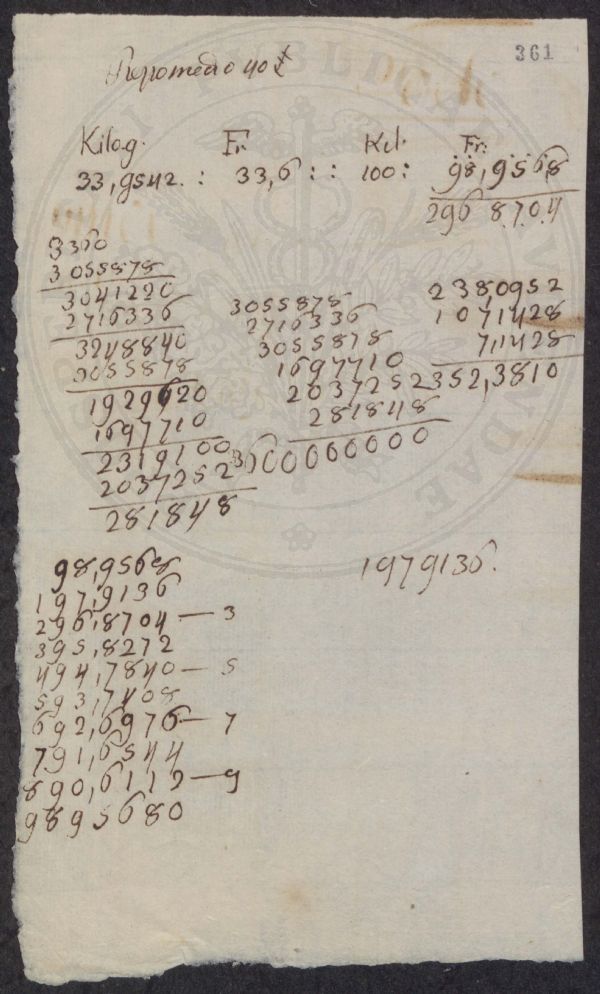 361
Propomedio 40 ₤
Kilog. Fr. Kil. Fr.
33,9542. : 33,6 : : 100 : 98,9568
296 8.7.0.4
3360
3055878
3041220
2716336
3248840
3055878
1929620
1697710
2319100
2037252
281848
3055878
2716336
3055878
1697710
2037252
281848
3600000000
2380952
1071428
711428
352,3810
98,9568
197,9136
296,8704 — 3
395,8272
494,7840 — 5
593,7408
692,6976 — 7
791,6544
890,6112 — 9
9895680
1979136.